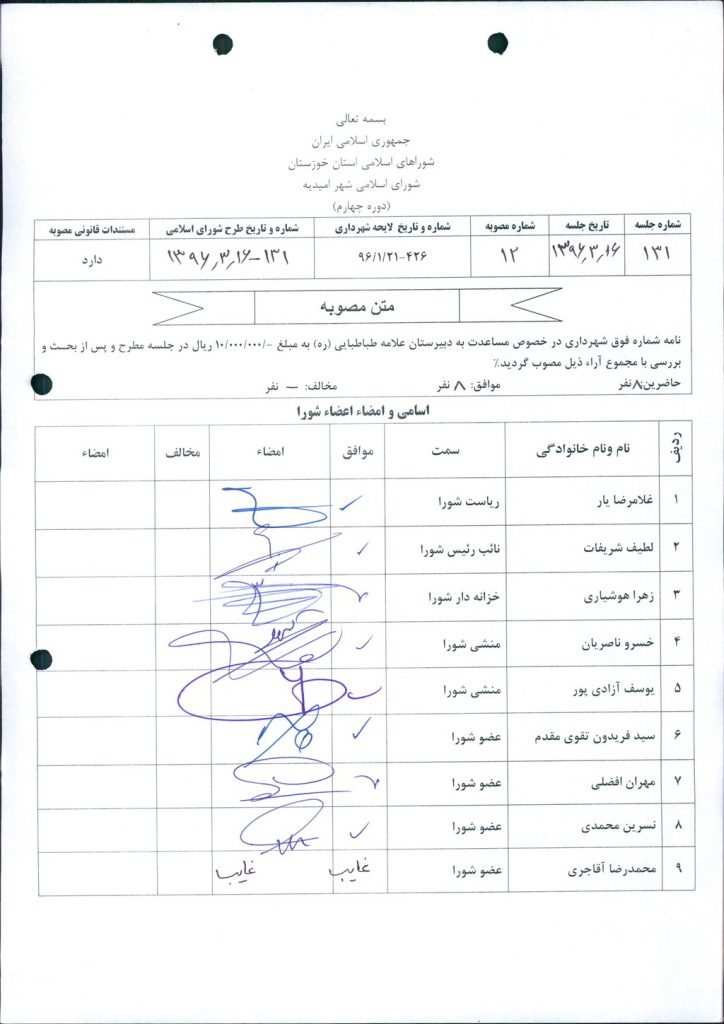 بسمه تعالی
جمهوری اسلامی ایران
شوراهای اسلامی استان خوزستان
شورای اسلامی شهر امیدیه
(دوره چهارم)
شماره جلسه تاریخ جلسه شماره مصوبه شماره و تاریخ لایحه شهرداری شماره و تاریخ طرح شورای اسلامی مستندات قانونی مصوبه
۱۳۱ ۱۳۹۶٫۳٫۱۶ ۱۲ ۹۶/۱/۲۱-۴۲۶ ۱۳۹۶٫۳٫۱۶-۱۳۱ دارد
متن مصوبه
نامه شماره فوق شهرداری در خصوص مساعدت به دبیرستان علامه طباطبایی (ره) به مبلغ -/۱۰/۰۰۰/۰۰۰ ریال در جلسه مطرح و پس از بحث و
بررسی با مجموع آراء ذیل مصوب گردید٪
حاضرین:۸نفر موافق: ۸ نفر مخالف: – نفر
اسامی و امضاء اعضاء شورا
ردیف نام ونام خانوادگی سمت موافق امضاء مخالف امضاء
۱ غلامرضا یار ریاست شورا
۲ لطیف شریفات نائب رئیس شورا
۳ زهرا هوشیاری خزانه دار شورا
۴ خسرو ناصریان منشی شورا
۵ یوسف آزادی پور منشی شورا
۶ سید فریدون تقوی مقدم عضو شورا
۷ مهران افضلی عضو شورا
۸ نسرین محمدی عضو شورا
۹ محمدرضا آقاجری عضو شورا غایب غایب